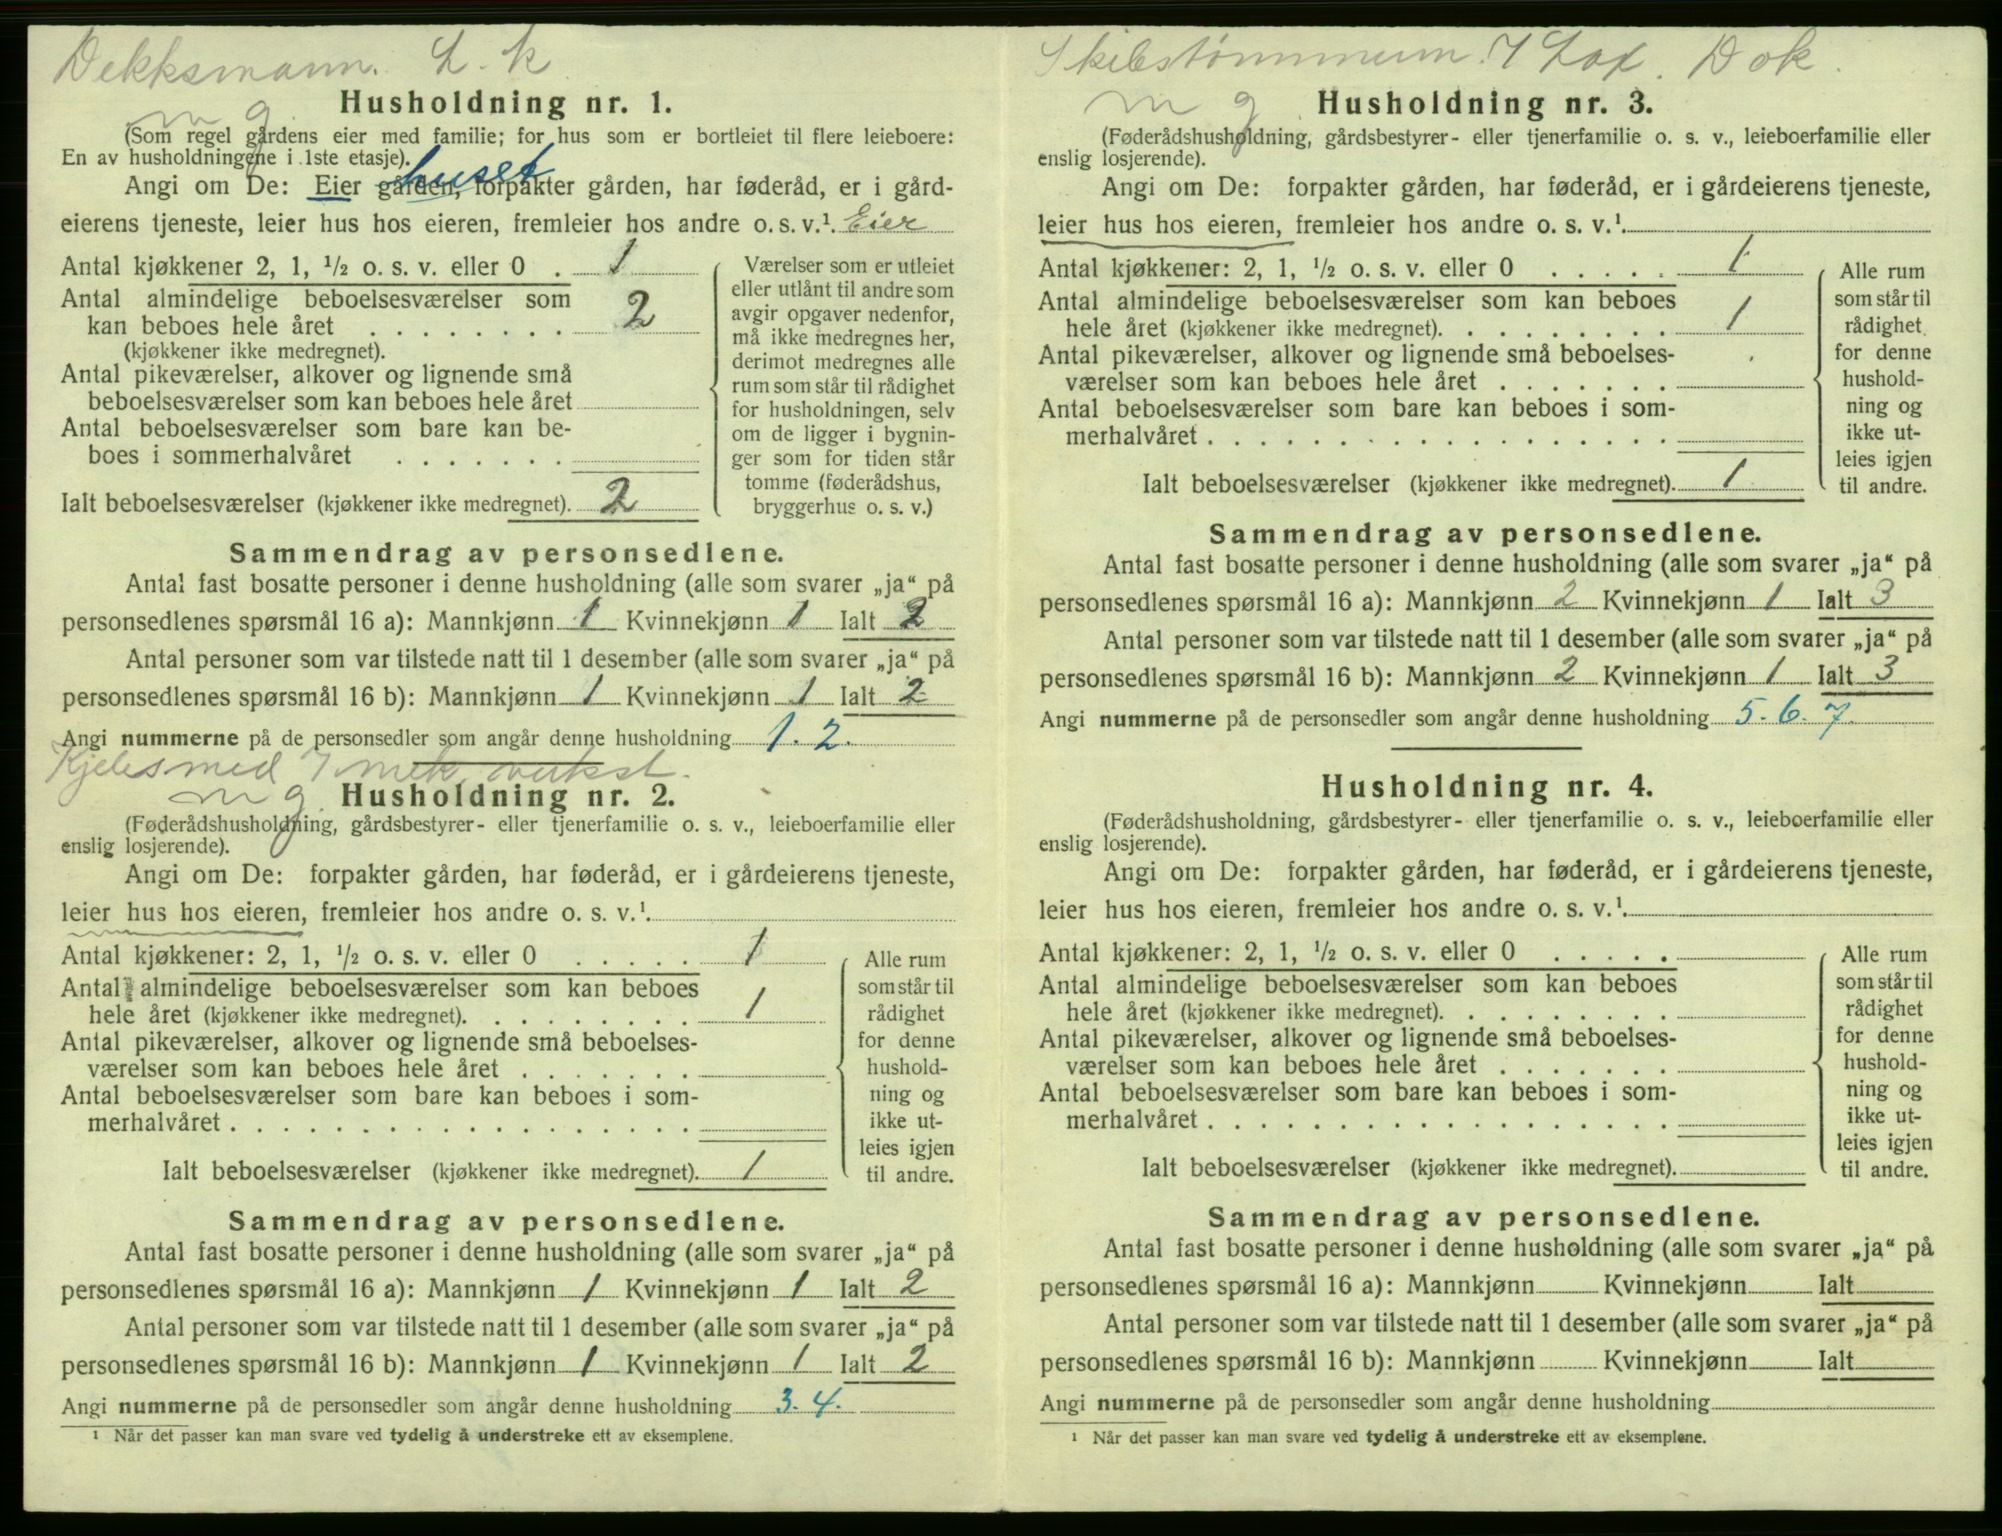 Dekksmann. L. k
m g
Husholdning nr. 1.
(Som regel gårdens eier med familie; for hus som er bortleiet til flere leieboere:
En av husholdningene i 1ste etasje).
huset
Angi om De: Eier gården, forpakter gården, har føderåd, er i gård-
eierens tjeneste, leier hus hos eieren, fremleier hos andre o. s. v.¹. Eier
Antal kjøkkener 2, 1, ½ o. s. v. eller 0 . 1
Antal almindelige beboelsesværelser som
kan beboes hele året . . . . . . . . 2
(kjøkkener ikke medregnet).
Antal pikeværelser, alkover og lignende små
beboelsesværelser som kan beboes hele året
Antal beboelsesværelser som bare kan be-
boes i sommerhalvåret . . . . . . .
Ialt beboelsesværelser (kjøkkener ikke medregnet). 2
Værelser som er utleiet
eller utlånt til andre som
avgir opgaver nedenfor,
må ikke medregnes her,
derimot medregnes alle
rum som står til rådighet
for husholdningen, selv
om de ligger i bygnin-
ger som for tiden står
tomme (føderådshus,
bryggerhus o. s. v.)
Sammendrag av personsedlene.
Antal fast bosatte personer i denne husholdning (alle som svarer „ja“ på
personsedlenes spørsmål 16 a): Mannkjønn 1 Kvinnekjønn 1 Ialt 2
Antal personer som var tilstede natt til 1 desember (alle som svarer „ja“ på
personsedlenes spørsmål 16 b): Mannkjønn 1 Kvinnekjønn 1 Ialt 2
Angi nummerne på de personsedler som angår denne husholdning 1. 2.
Kjelesmed / mek. verkst.
m g
Husholdning nr. 2.
(Føderådshusholdning, gårdsbestyrer- eller tjenerfamilie o. s. v., leieboerfamilie eller
enslig losjerende).
Angi om De: forpakter gården, har føderåd, er i gårdeierens tjeneste,
leier hus hos eieren, fremleier hos andre o. s. v.¹.
Antal kjøkkener: 2, 1, ½ o. s. v. eller 0 . . . . . 1
Antal almindelige beboelsesværelser som kan beboes
hele året (kjøkkener ikke medregnet). . . . . . . . . 1
Antal pikeværelser, alkover og lignende små beboelses-
værelser som kan beboes hele året . . . . . . .
Antal beboelsesværelser som bare kan beboes i som-
merhalvåret . . . . . . . . . . . . . . . . . .
Ialt beboelsesværelser (kjøkkener ikke medregnet). 1
Alle rum
som står til
rådighet
for denne
hushold-
ning og
ikke ut-
leies igjen
til andre.
Sammendrag av personsedlene.
Antal fast bosatte personer i denne husholdning (alle som svarer „ja“ på
personsedlenes spørsmål 16 a): Mannkjønn 1 Kvinnekjønn 1 Ialt 2
Antal personer som var tilstede natt til 1 desember (alle som svarer „ja“ på
personsedlenes spørsmål 16 b): Mannkjønn 1 Kvinnekjønn 1 Ialt 2
Angi nummerne på de personsedler som angår denne husholdning 3. 4.
¹ Når det passer kan man svare ved tydelig å understreke ett av eksemplene.
Skibstømmerm. / Lax. Dok.
m g
Husholdning nr. 3.
(Føderådshusholdning, gårdsbestyrer- eller tjenerfamilie o. s. v., leieboerfamilie eller
enslig losjerende).
Angi om De: forpakter gården, har føderåd, er i gårdeierens tjeneste,
leier hus hos eieren, fremleier hos andre o. s. v.¹.
Antal kjøkkener: 2, 1, ½ o. s. v. eller 0 . . . . . 1
Antal almindelige beboelsesværelser som kan beboes
hele året (kjøkkener ikke medregnet). . . . . . . . . 1
Antal pikeværelser, alkover og lignende små beboelses-
værelser som kan beboes hele året . . . . . . .
Antal beboelsesværelser som bare kan beboes i som-
merhalvåret . . . . . . . . . . . . . . . . . .
Ialt beboelsesværelser (kjøkkener ikke medregnet). 1
Alle rum
som står til
rådighet
for denne
hushold-
ning og
ikke ut-
leies igjen
til andre.
Sammendrag av personsedlene.
Antal fast bosatte personer i denne husholdning (alle som svarer „ja“ på
personsedlenes spørsmål 16 a): Mannkjønn 2 Kvinnekjønn 1 Ialt 3
Antal personer som var tilstede natt til 1 desember (alle som svarer „ja“ på
personsedlenes spørsmål 16 b): Mannkjønn 2 Kvinnekjønn 1 Ialt 3
Angi nummerne på de personsedler som angår denne husholdning 5. 6. 7.
Husholdning nr. 4.
(Føderådshusholdning, gårdsbestyrer- eller tjenerfamilie o. s. v., leieboerfamilie eller
enslig losjerende).
Angi om De: forpakter gården, har føderåd, er i gårdeierens tjeneste,
leier hus hos eieren, fremleier hos andre o. s. v.¹.
Antal kjøkkener: 2, 1, ½ o. s. v. eller 0 . . . . .
Antal almindelige beboelsesværelser som kan beboes
hele året (kjøkkener ikke medregnet). . . . . . . . .
Antal pikeværelser, alkover og lignende små beboelses-
værelser som kan beboes hele året . . . . . . .
Antal beboelsesværelser som bare kan beboes i som-
merhalvåret . . . . . . . . . . . . . . . . . .
Ialt beboelsesværelser (kjøkkener ikke medregnet).
Alle rum
som står til
rådighet
for denne
hushold-
ning og
ikke ut-
leies igjen
til andre.
Sammendrag av personsedlene.
Antal fast bosatte personer i denne husholdning (alle som svarer „ja“ på
personsedlenes spørsmål 16 a): Mannkjønn Kvinnekjønn Ialt
Antal personer som var tilstede natt til 1 desember (alle som svarer „ja“ på
personsedlenes spørsmål 16 b): Mannkjønn Kvinnekjønn Ialt
Angi nummerne på de personsedler som angår denne husholdning
¹ Når det passer kan man svare ved tydelig å understreke ett av eksemplene.